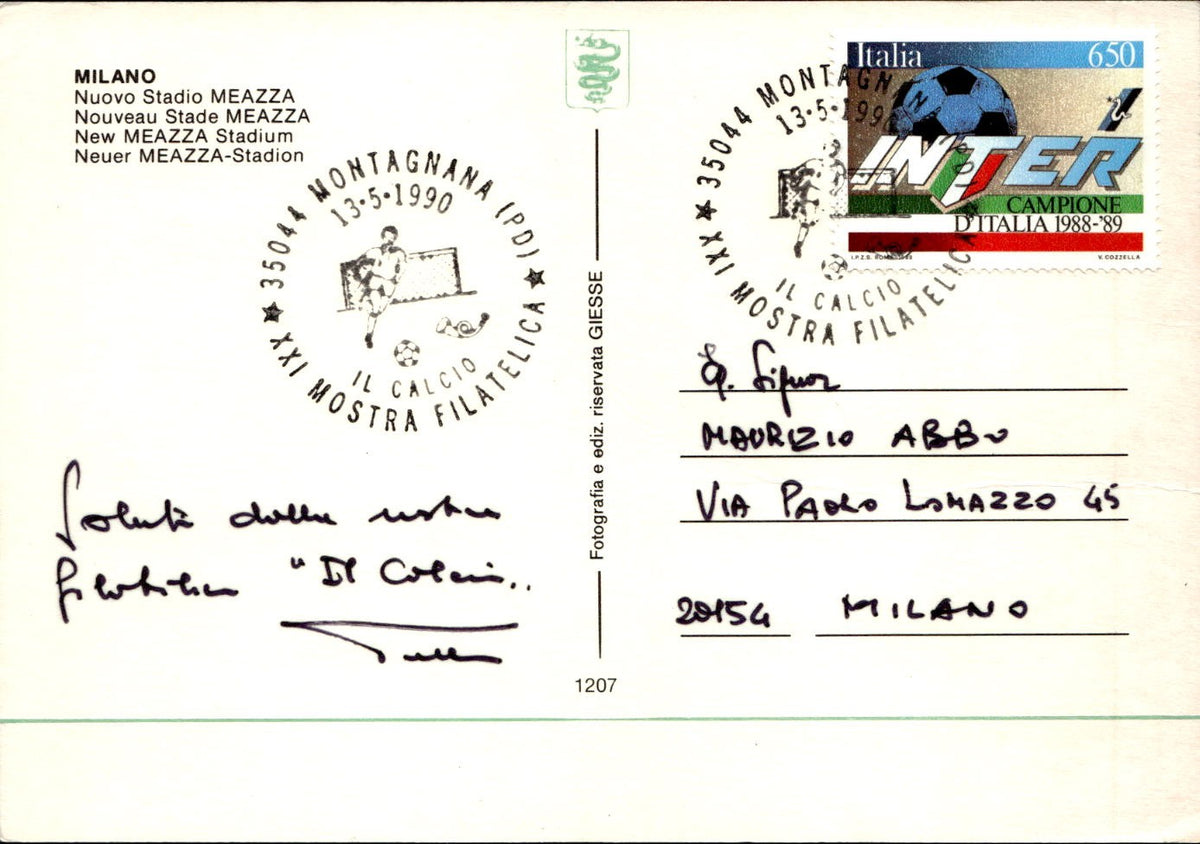 MILANO
Nuovo Stadio MEAZZA
Nouveau Stade MEAZZA
New MEAZZA Stadium
Neuer MEAZZA-Stadion
★ 35044 MONTAGNANA (PD) ★
13·5·1990
IL CALCIO
XXI MOSTRA FILATELICA
Saluti dalla mostra
filatelica "Il Calcio..
Fotografia e ediz. riservata GIESSE
1207
Italia 650
INTER
CAMPIONE
D'ITALIA 1988-'89
I.P.Z.S. ROMA
V. COZZELLA
★ 35044 MONTAGNAN
13·5·1990
IL CALCIO
XXI MOSTRA FILATELICA
Signor
MAURIZIO ABBO
VIA PAOLO LOMAZZO 45
20154 MILANO